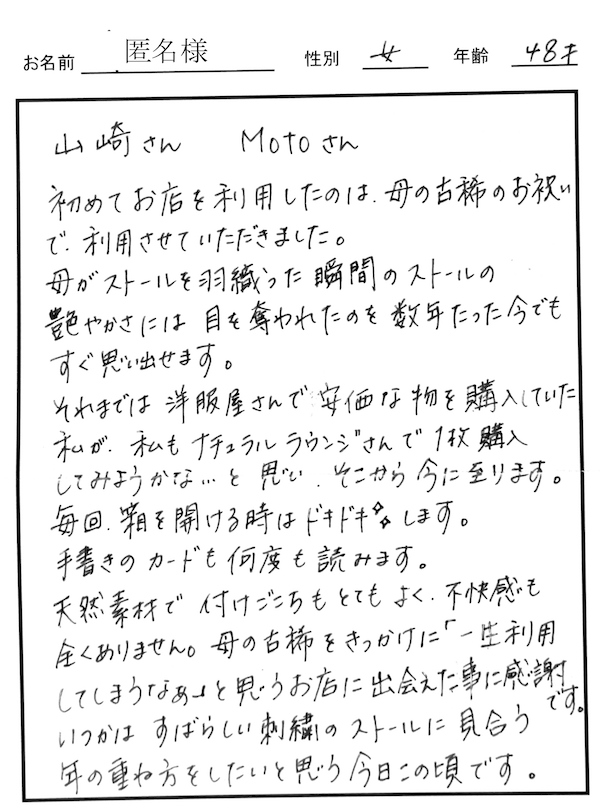 お名前 匿名様 性別 女 年齢 48才
山崎さん Motoさん
初めてお店を利用したのは、母の古稀のお祝い
で、利用させていただきました。
母がストールを羽織った瞬間のストールの
艶やかさには目を奪われたのを数年たった今でも
すぐ思い出せます。
それまでは洋服屋さんで安価な物を購入していた
私が、私もナチュラルラウンジさんで1枚購入
してみようかな…と思い、そこから今に至ります。
毎回、箱を開ける時はドキドキします。
手書きのカードも何度も読みます。
天然素材で付けごこちもとてもよく、不快感も
全くありません。母の古稀をきっかけに「一生利用
してしまうなぁ」と思うお店に出会えた事に感謝です。
いつかはすばらしい刺繍のストールに見合う
年の重ね方をしたいと思う今日この頃です。